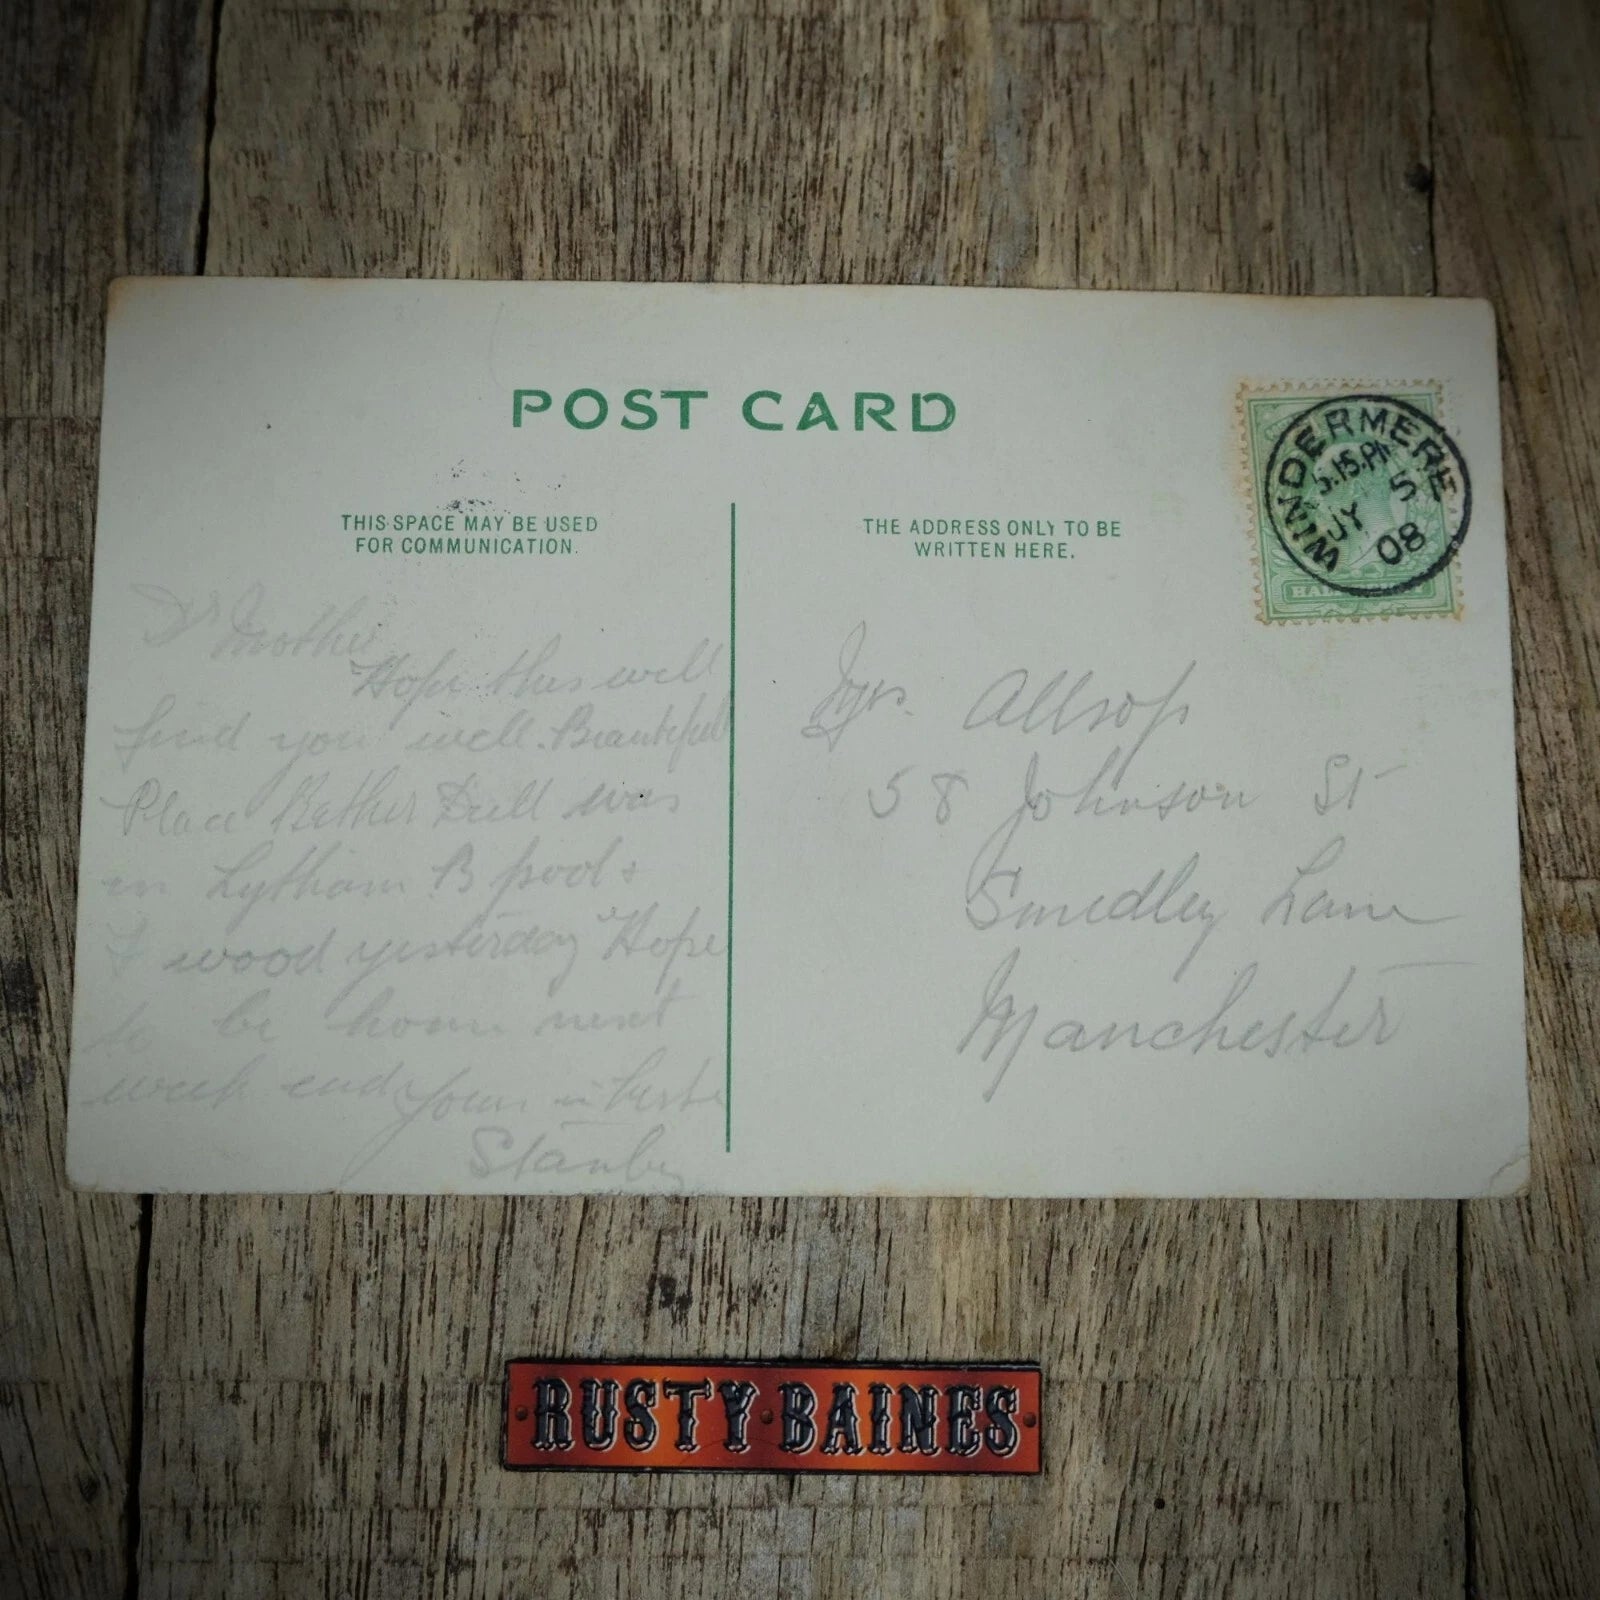 POST CARD
THIS SPACE MAY BE USED
FOR COMMUNICATION.
THE ADDRESS ONLY TO BE
WRITTEN HERE.
WINDERMERE
5.15.PM
JY 5
08
Dr Mother
Hope this will
find you well. Beautiful
Place Rather Dull was
in Lytham B pool &
F wood yesterday Hope
to be home next
week end Yours in haste
Stanley
Allsop
58 Johnson St
Smedley Lane
Manchester
RUSTY BAINES